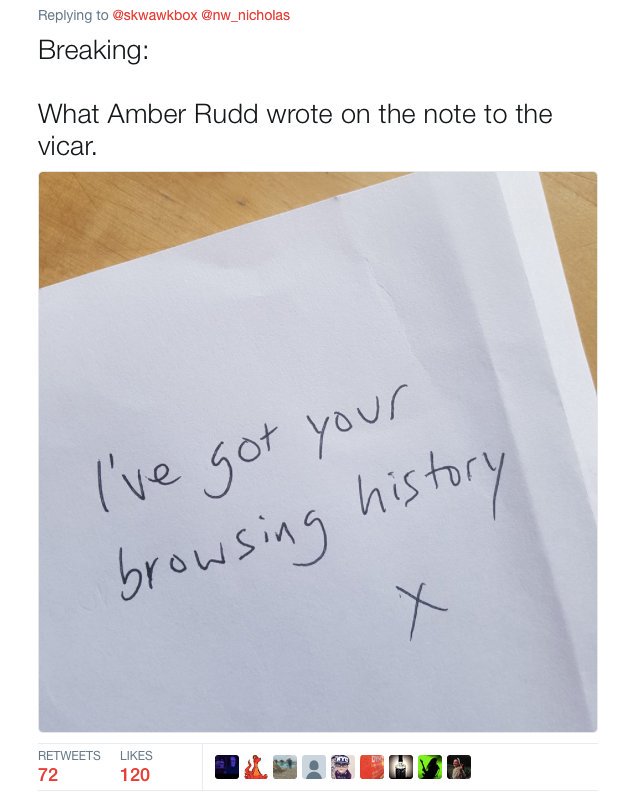 Replying to @skwawkbox @nw_nicholas
Breaking:
What Amber Rudd wrote on the note to the
vicar.
I've got your
browsing history
x
RETWEETS LIKES
72 120